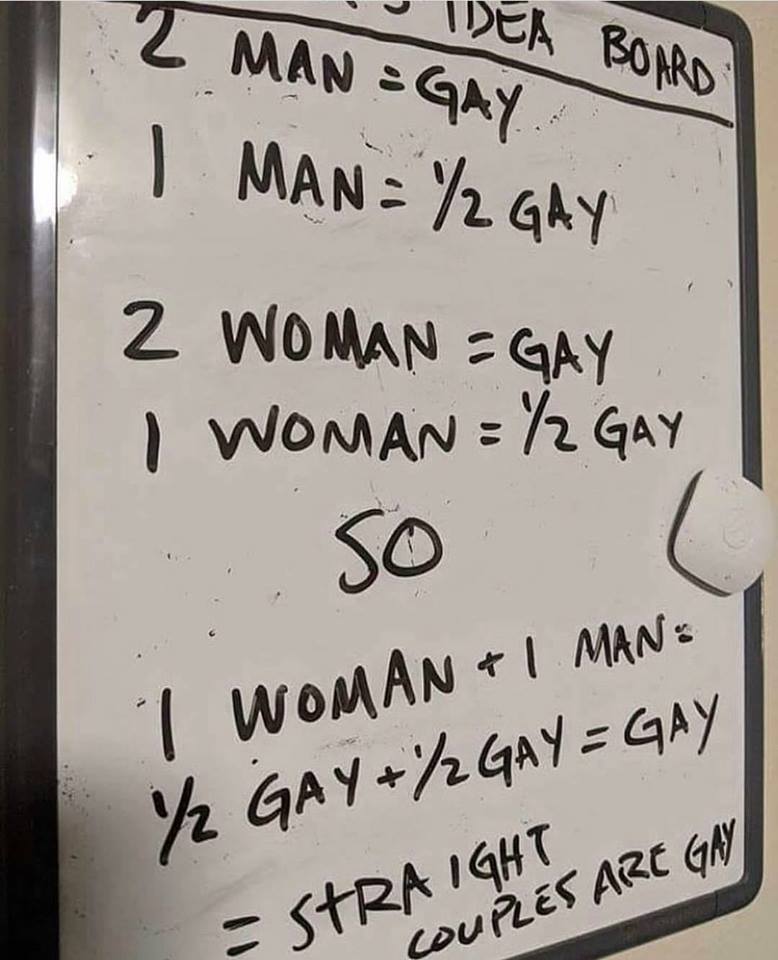 IDEA BOARD
2 MAN = GAY
1 MAN = 1/2 GAY
2 WOMAN = GAY
1 WOMAN = 1/2 GAY
SO
1 WOMAN + 1 MAN =
1/2 GAY + 1/2 GAY = GAY
= STRAIGHT
COUPLES ARE GAY